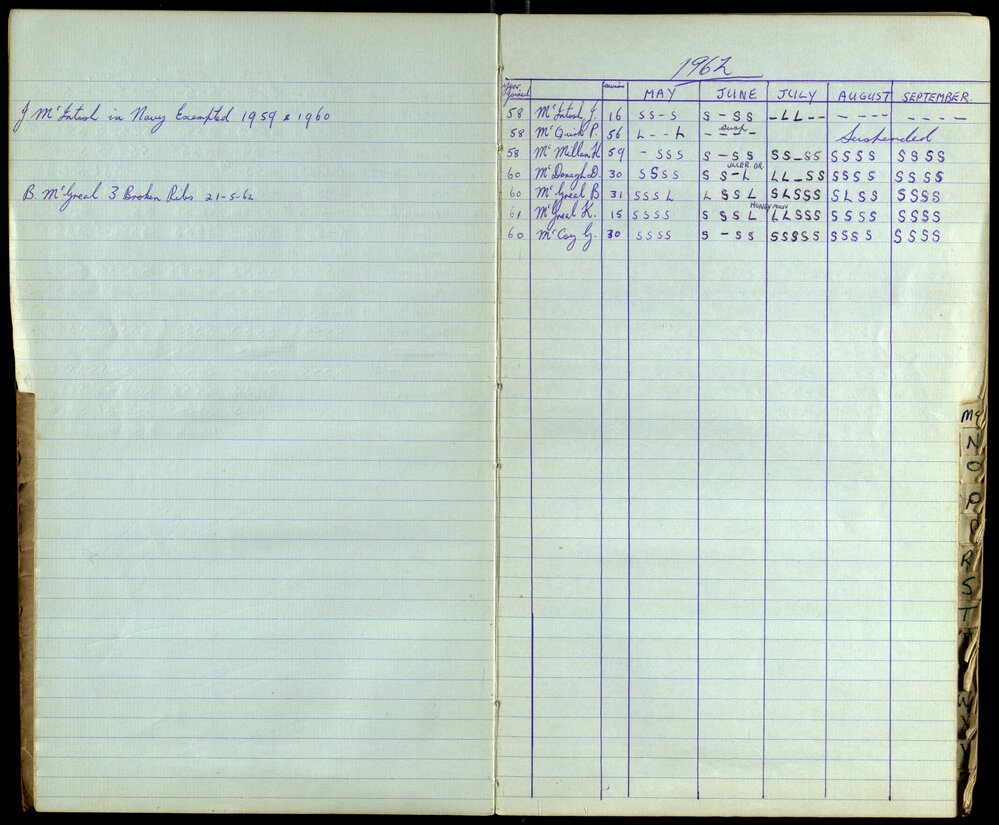 J McIntosh in Navy Exempted 1959 & 1960
B. McGreal 3 Broken Ribs 21-5-62
1962
Year Joined MAY JUNE JULY AUGUST SEPTEMBER
58 McIntosh, J. 16 SS-S S-SS -LL-- ---- ----
58 McQuirk P. 56 L--L ---- Susp. Suspended
58 McMillan K 59 -SSS S-SS SS-SS SSSS SSSS
60 McDonagh D. 30 SSSS SS-L ULCER DR. LL-SS SSSS SSSS
60 McGreal B 31 SSSL LSSL SLSSS SLSS SSSS
61 McGreal K. 15 SSSS SSSL HONEYMOON LLSSS SSSS SSSS
60 McCoy G. 30 SSSS S-SS SSSSS SSSS SSSS
Mc
N
O
P
R
S
T
W
Y